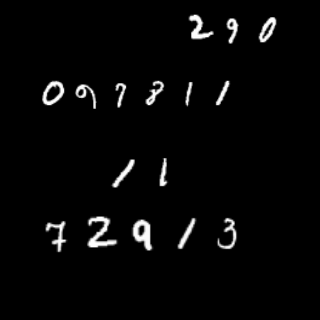 290
097811
11
72913